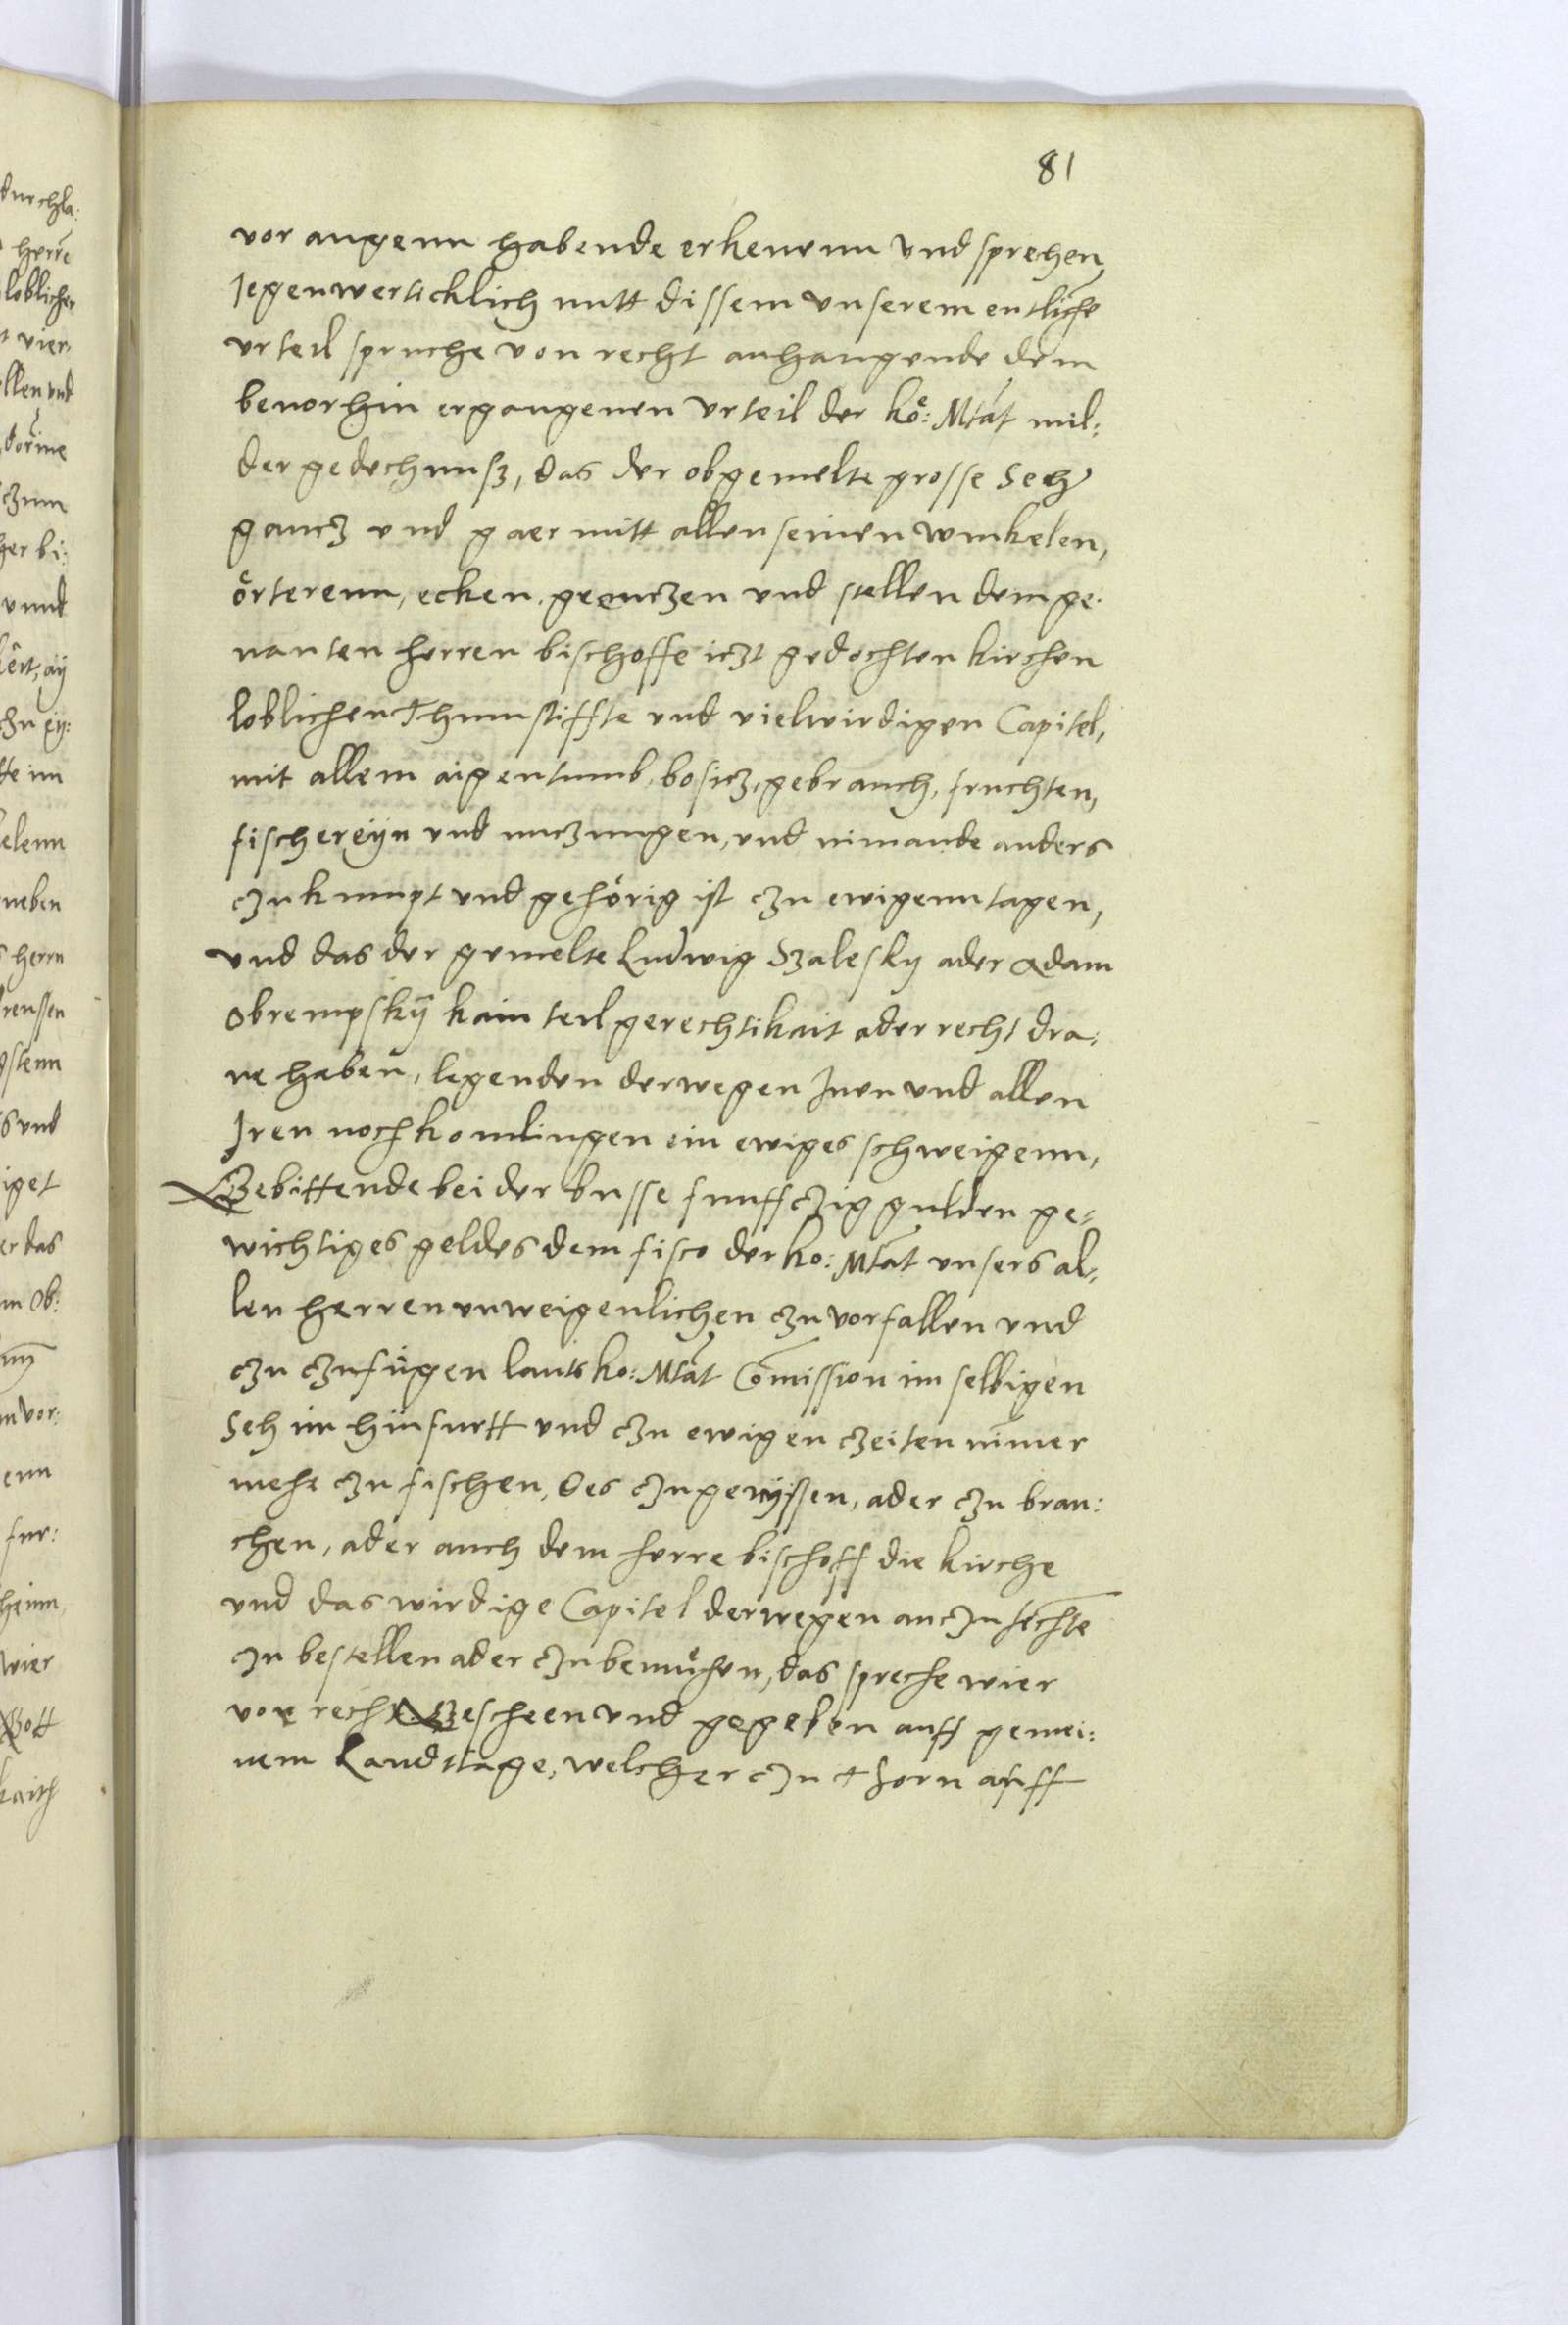 81
vor augenn habende erkenenn und sprechen
Jegenwerticklich mitt dissem unserem entliche͂
urteil spruche von recht anhangende dem
bevorhin ergangenen urteil der kö: Mtãt mil:
der gedechnuß, das der obgemelte grosse Seh
gancz und gaer mitt allen seinen winkelen,
örterenn, ecken, grenczen und stellen dem ge:
nanten herren bischoffe iczt gedochten kirchen
loblichen Thumstiffte und vielwirdigen Capitel,
mit allem aigentumb, besicz, gebrauch, fruchten,
fischereÿn und nuczungen, und nimande anders
czukumpt und gehörig ist czu ewigenn tagen,
und das der gemelte Ludwig Szalesky ader Adam
Obrempskÿ kain teil gerechtikait ader recht dra:
ne haben, legenden derwegen Inen und allen
Iren nochkomlingen ein ewiges schweigenn,
Gebittende bei der busse funffczig gulden ge:
wichtiges geldes dem fisco der ko: Mtãt unsers al:
len herren unweigenlichen czu vorfallen und
czu czufügen lauts ko: Mtãt Com̃ission im selbigen
Seh im hinfurtt und czu ewigen czeiten nim̃er
mehr czu fischen, Des czu genÿssen, ader czu brau:
chen, ader auch dem herre bischoff die kirche
und das wirdige Capitel derwegen anczufechte͂
czu bestellen ader czu bemühen, das spreche wier
vor recht. Gescheen und gegeben auff gemei:
nem Landttage, welcher czu Thorn auff
durchla:
herre͂
loblicher
vier
llen und
dorine
czum
her bi:
unnd
te im
elenn
neben
herrn
reussen
stenn
und
iget
er das
m Ob:
m vor:
enn
fur:
heinn
wier
Gott
kaith